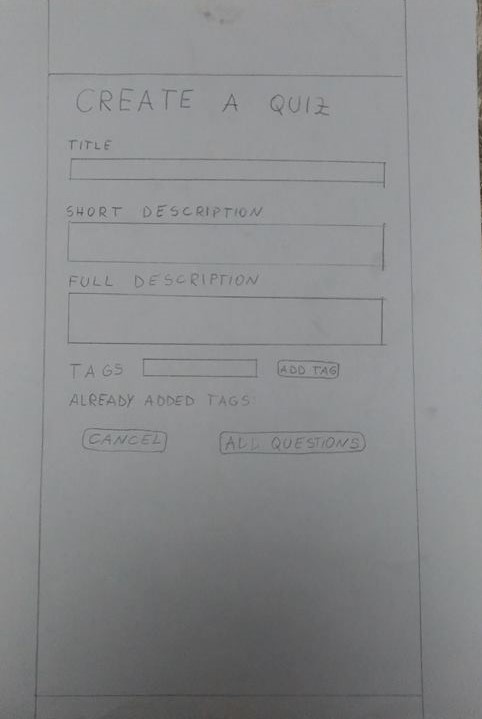 CREATE A QUIZ
TITLE
SHORT DESCRIPTION
FULL DESCRIPTION
TAGS ADD TAG
ALREADY ADDED TAGS:
CANCEL QUESTIONS